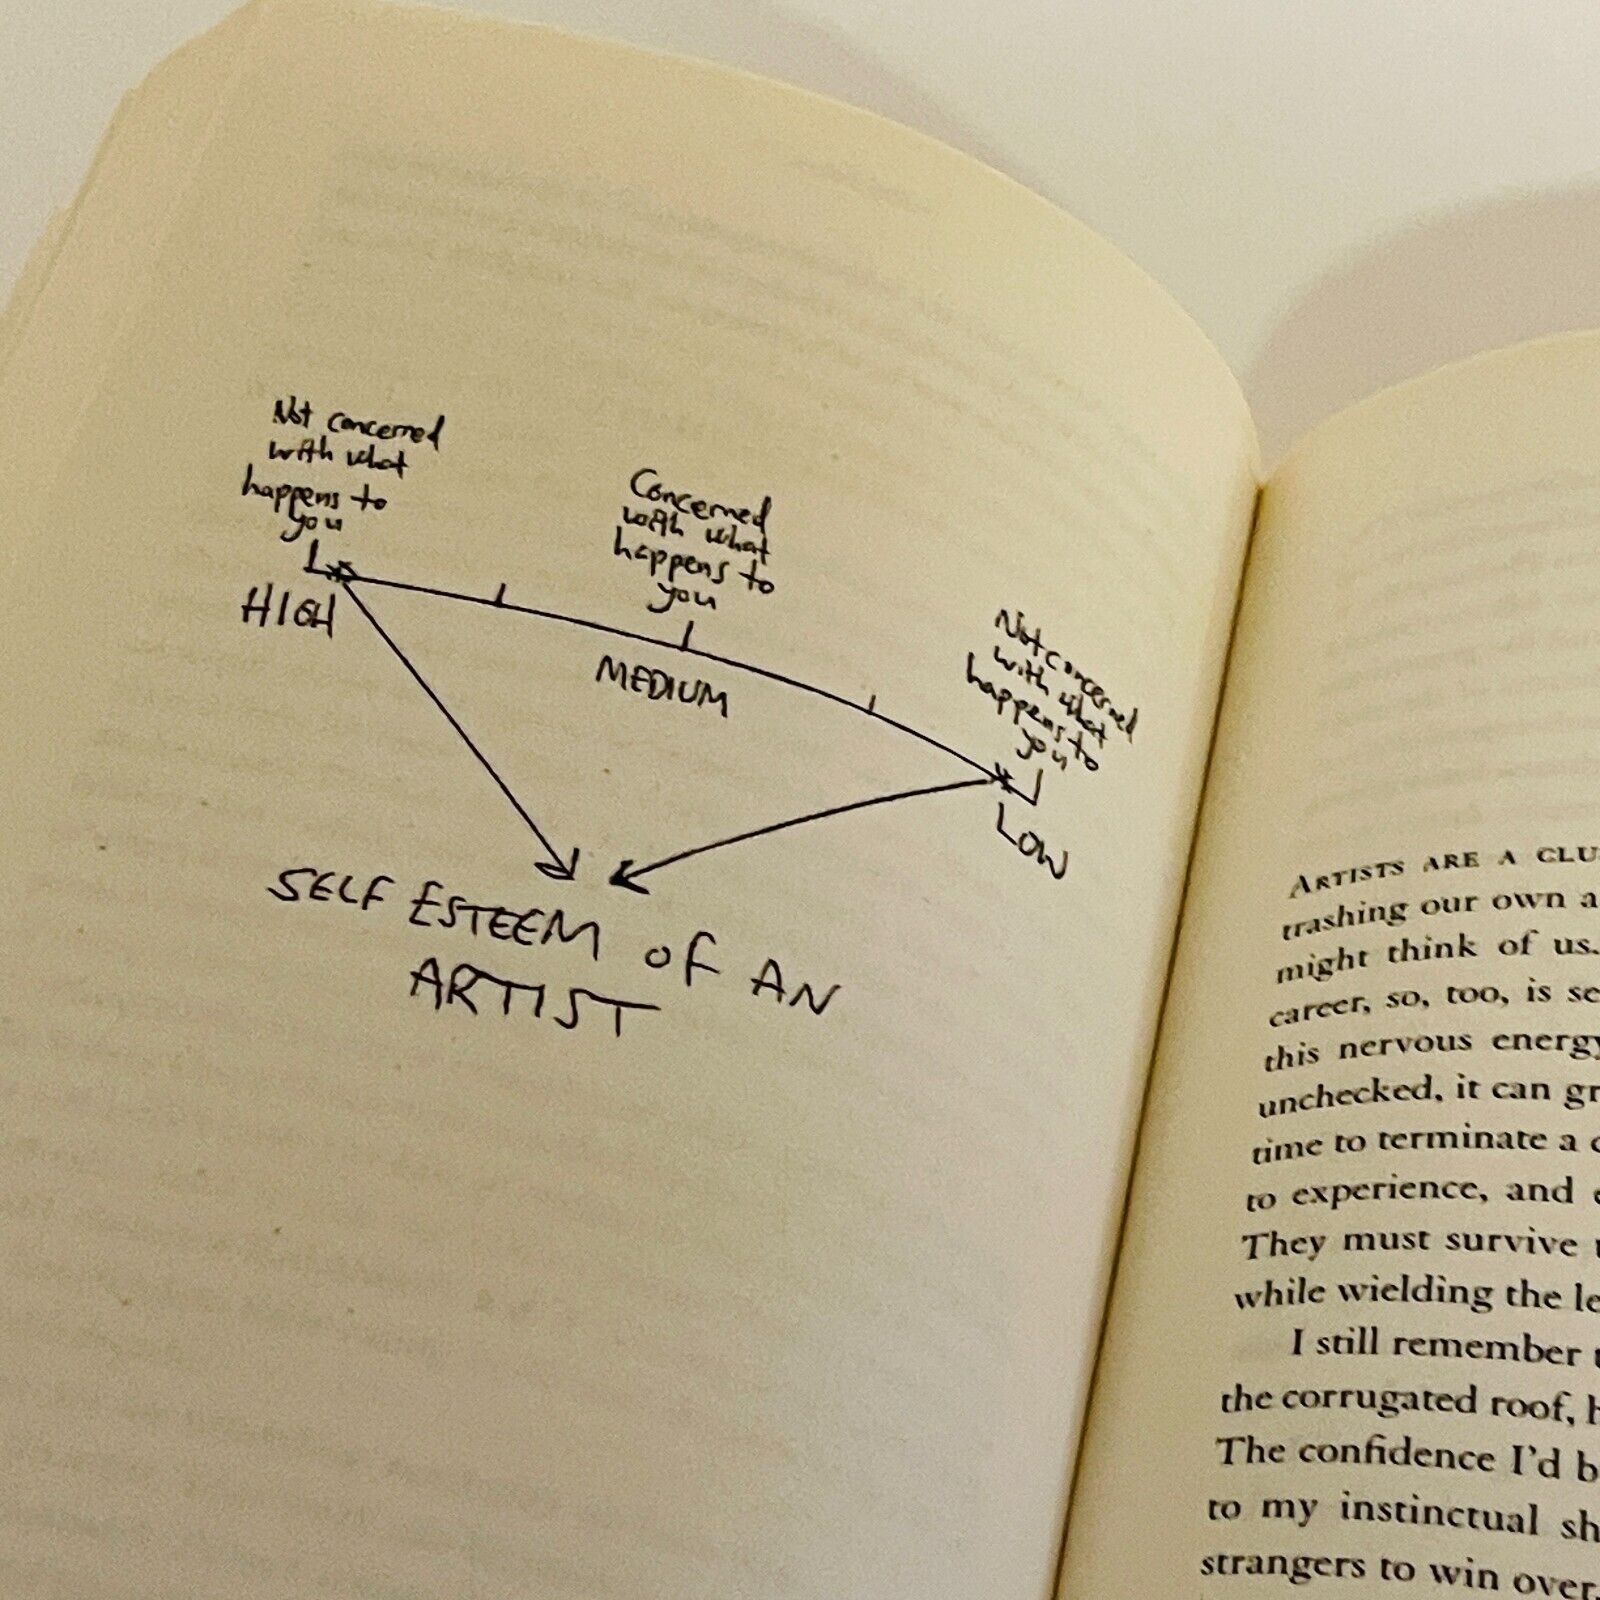 Not concerned
with what
happens to
you
HIGH
Concerned
with what
happens to
you
MEDIUM
Not concerned
with what
happens to
you
LOW
SELF ESTEEM OF AN
ARTIST
ARTISTS ARE A CLU
trashing our own a
might think of us.
career, so, too, is se
this nervous energy
unchecked, it can gr
time to terminate a c
to experience, and e
They must survive t
while wielding the le
I still remember t
the corrugated roof, h
The confidence I'd b
to my instinctual sh
strangers to win over.